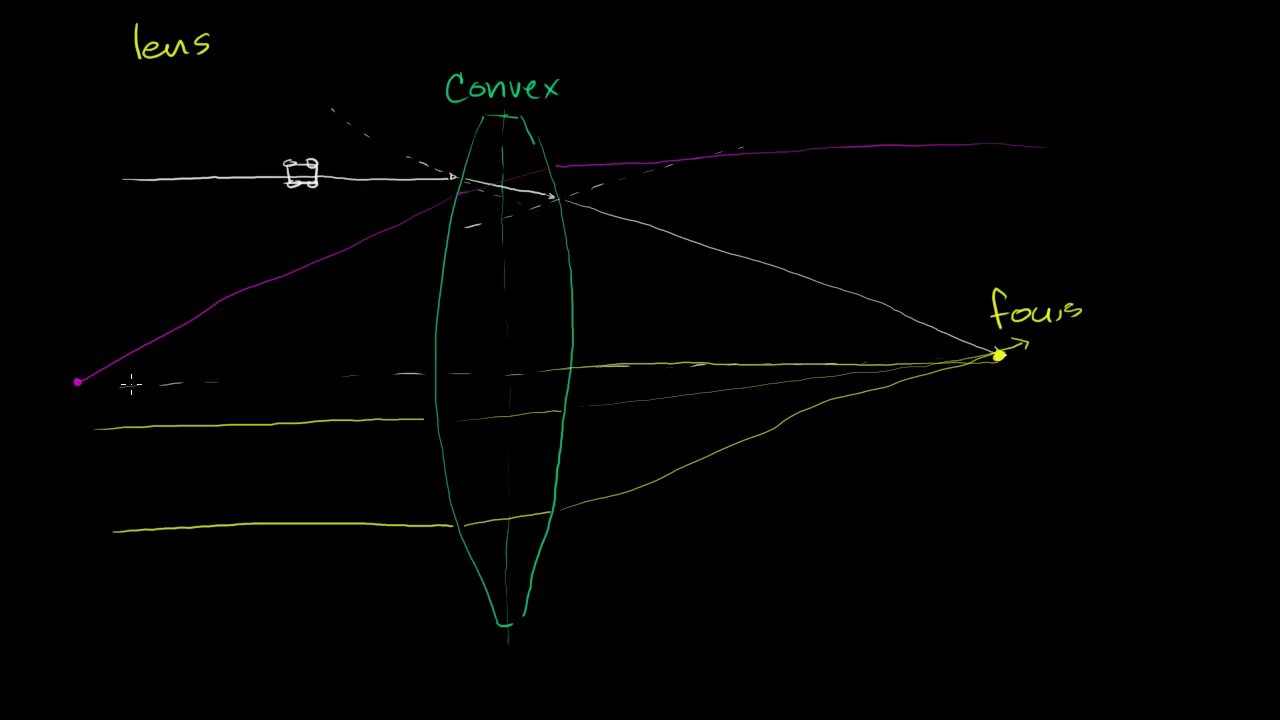 lens
Convex
focus